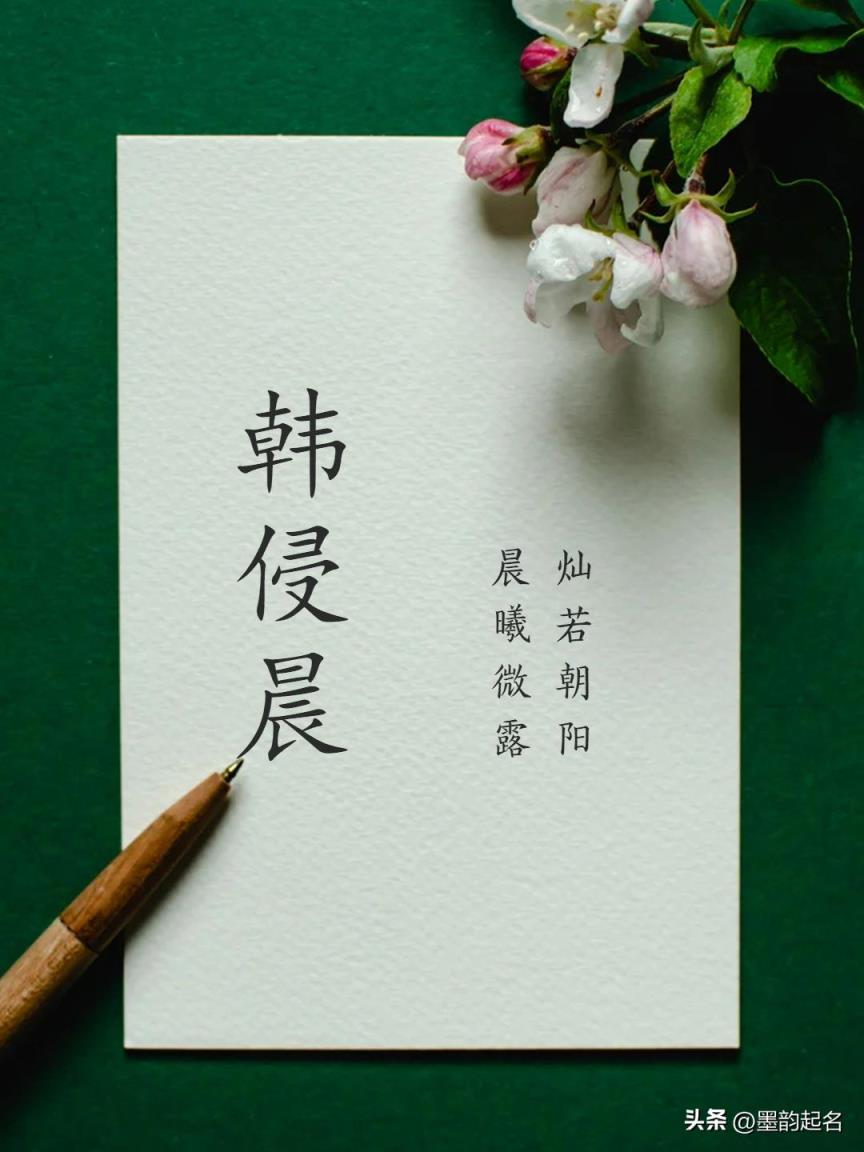 韩侵晨
灿若朝阳
晨曦微露
头条 @墨韵起名